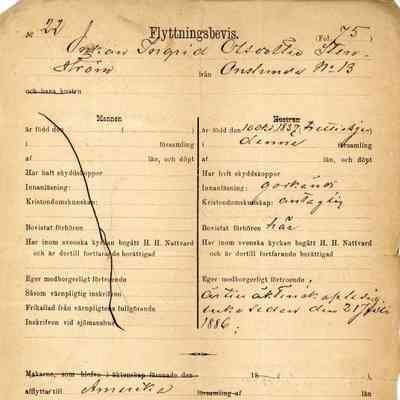 № 22 Flyttningsbevis. (Fol. 75)
Enkan Ingrid Olsdotter Sten-
ström från Onslunda № 13
och hans hustru
Mannen
är född den ( )
i församling
af län, och döpt
Har haft skyddskoppor
Innanläsning:
Kristendomskunskap:
Bevistat förhören
Har inom svenska kyrkan begått H. H. Nattvard
och är dertill fortfarande berättigad
Eger medborgerligt förtroende
Såsom värnpligtig inskrifven
Frikallad från värnpligtens fullgörande
Inskrifven vid sjömanshus
Hustrun
är född den 10 Okt. 1837, ( )
i denna församling
af län, och döpt
Har haft skyddskoppor
Innanläsning: godkänd
Kristendomskunskap: antaglig
Bevistat förhören här
Har inom svenska kyrkan begått H. H. Nattvard
och är dertill fortfarande berättigad
Eger medborgerligt förtroende;
är till äktenskap ledig,
enka sedan den 21
1886;
Makarne, som blefvo i äktenskap förenade den 18
afflyttar till Amerika församling af län